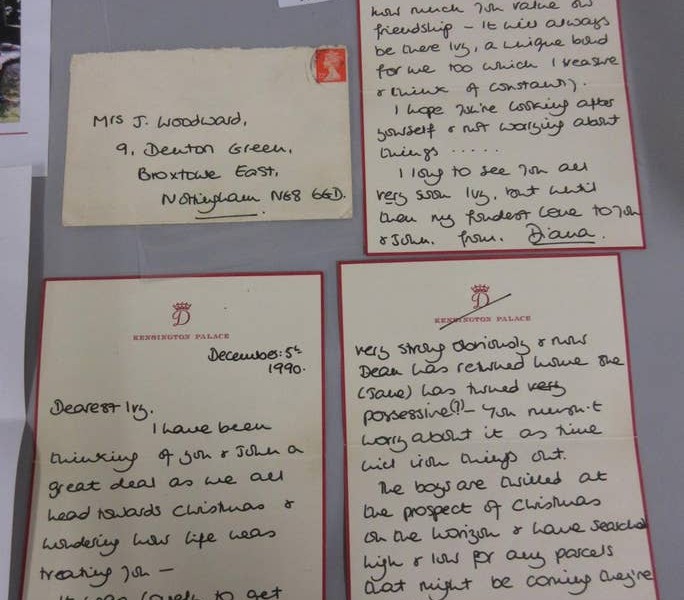 Mrs J. Woodward,
9, Denton Green,
Broxtowe East,
Nottingham NG8 6GD.
D
KENSINGTON PALACE
December: 5th
1990.
Dearest Ivy.
I have been
thinking of you & John a
great deal as we all
head towards Christmas &
wondering how life was
treating you –
It was lovely to get
D
KENSINGTON PALACE
very strong obviously & now
Dean has returned home she
(Jane) has turned very
possessive(?) – You mustn't
worry about it as time
will iron things out.
The boys are thrilled at
the prospect of Christmas
on the horizon & have searched
high & low for any parcels
that might be coming they're
how much you value our
friendship – It will always
be there Ivy, a unique bond
for me too which I treasure
& think of constantly.
I hope you're looking after
yourself & not worrying about
things .....
I long to see you all
very soon Ivy, but until
then my fondest love to you
& John. from. Diana.